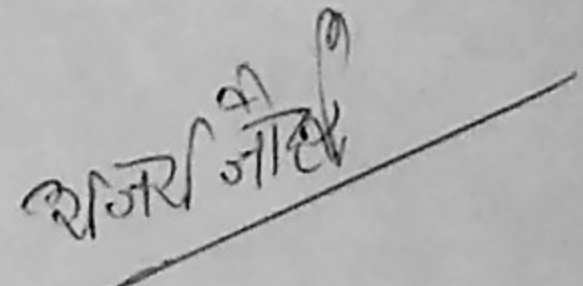 अजय जोशी